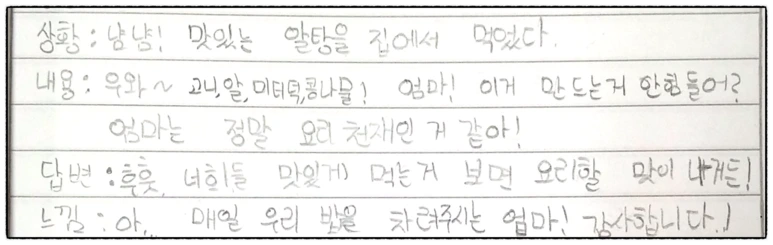 상황 : 냠냠! 맛있는 알탕을 집에서 먹었다.
내용 : 우와~ 고니,알,미더덕,콩나물! 엄마! 이거 만드는거 안힘들어?
엄마는 정말 요리 천재인 거 같아!
답변 : 후훗, 너희들 맛있게 먹는거 보면 요리할 맛이 나거든!
느낌 : 아.. 매일 우리 밥을 차려주시는 엄마! 감사합니다.!